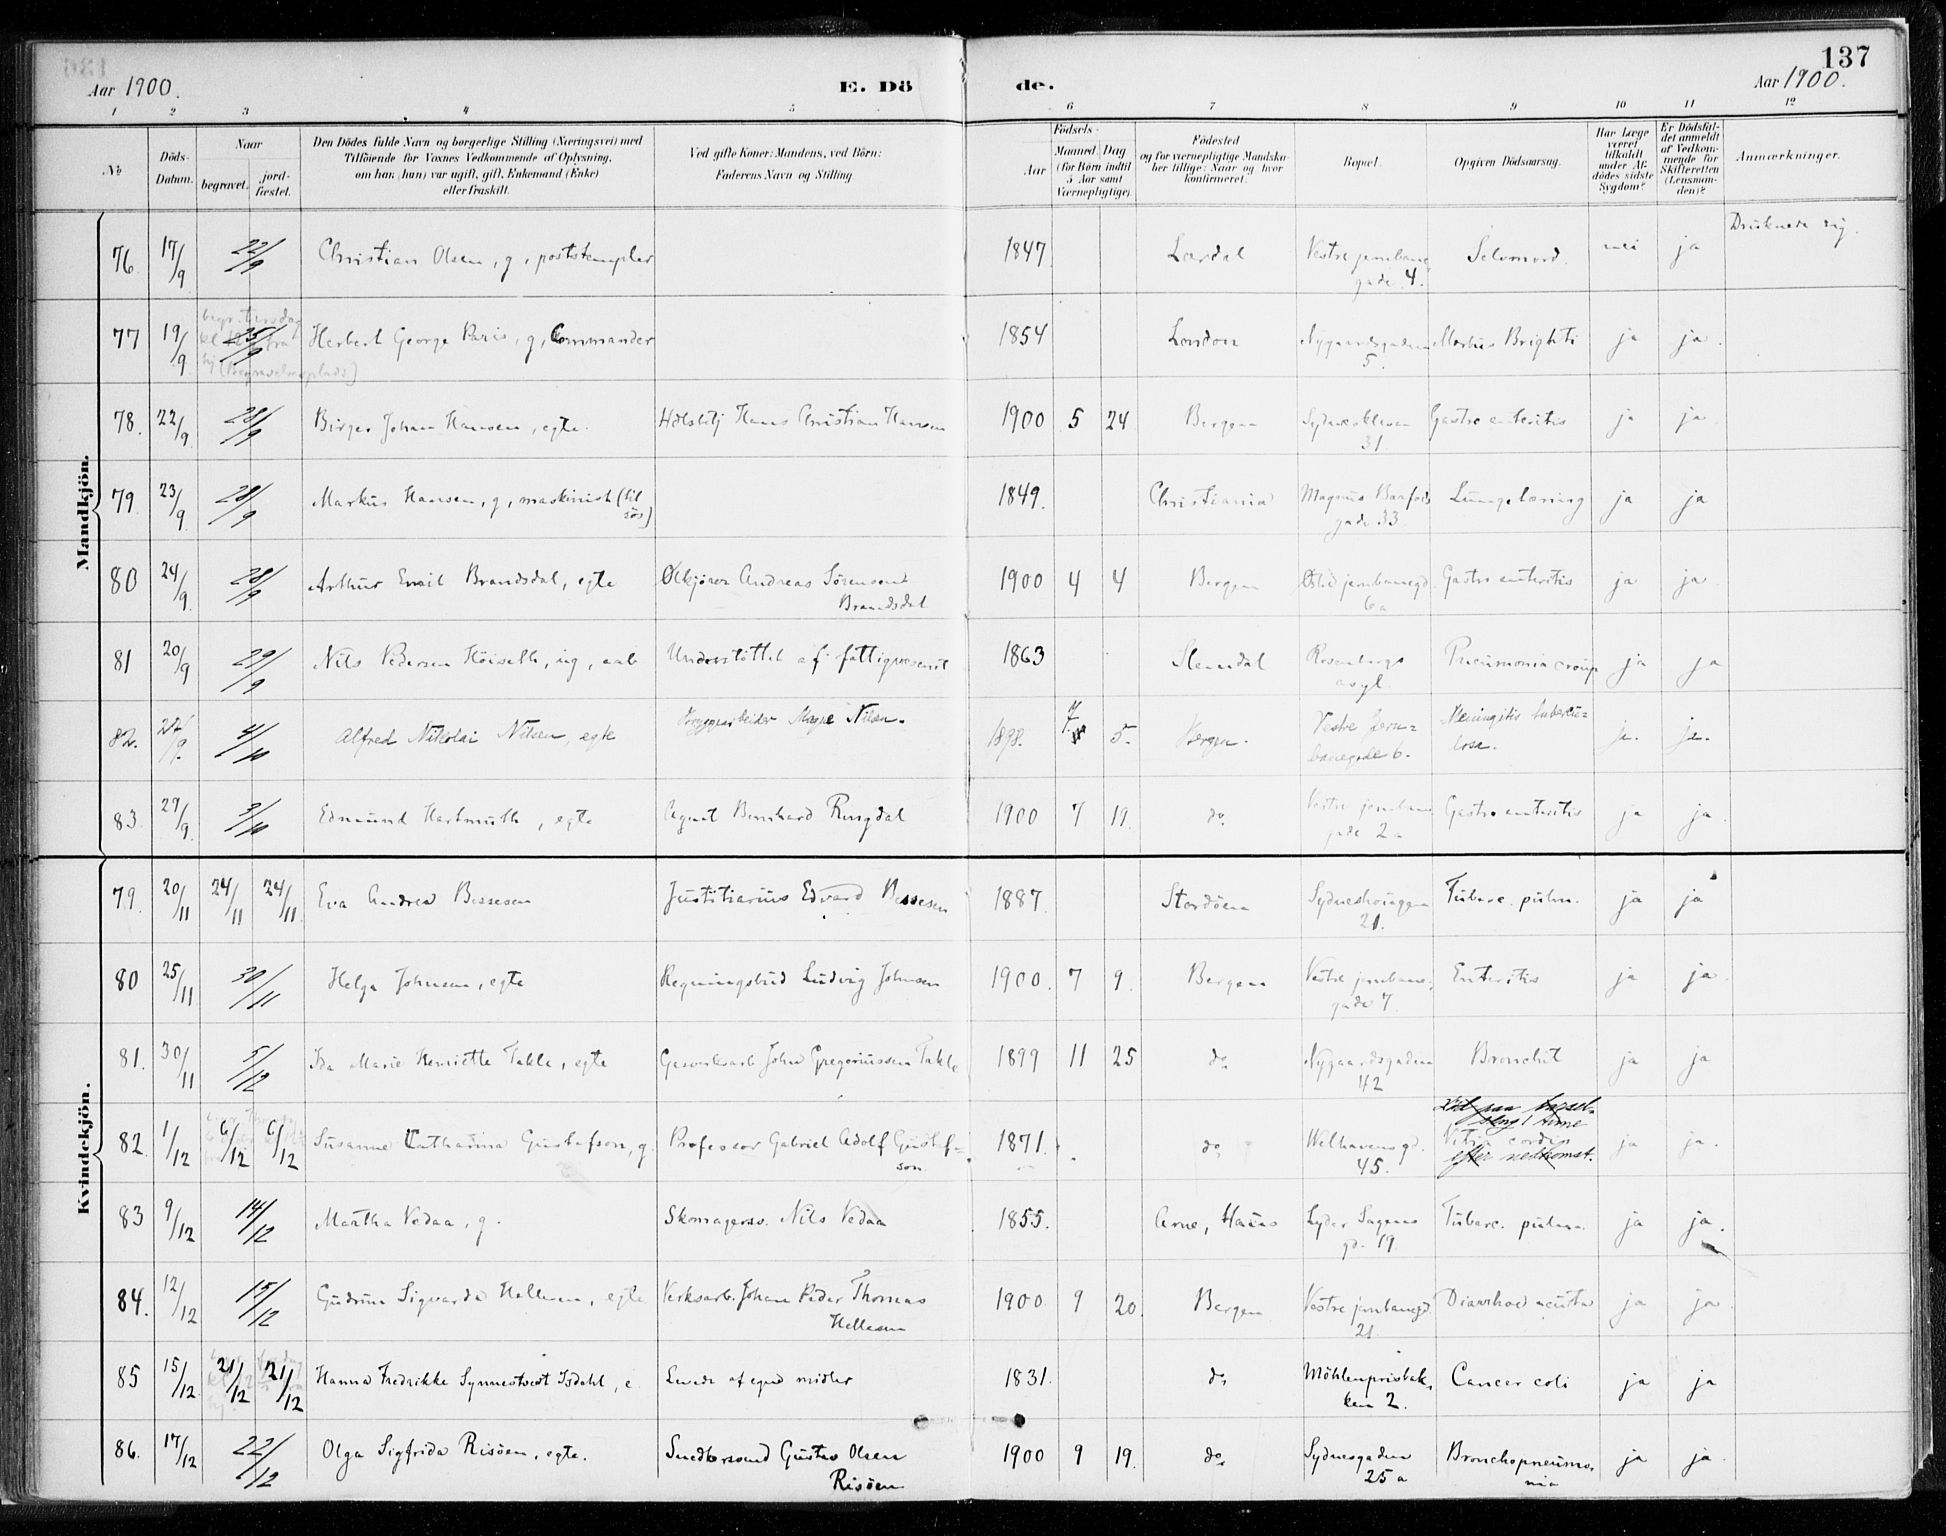 137
Aar 1900.
E. Dö
de.
Aar 1900.
1 2 3 4 5 6 7 8 9 10 11 12
No
Döds-Datum.
Naar
begravet.
jord-fæstet.
Den Dödes fulde Navn og borgerlige Stilling (Næringsvei) med
Tilföiende for Voxnes Vedkommende af Oplysning,
om han (hun) var ugift, gift, Enkemand (Enke)
eller fraskilt.
Ved gifte Koner: Mandens, ved Börn:
Faderens Navn og Stilling
Födsels-
Aar
Maaned Dag
(for Börn indtil
5 Aar samt
Værnepligtige).
Födested
og for værnepligtige Mandska-
ber tillige: Naar og hvor
konfirmeret.
Bopæl.
Opgiven Dödsaarsag.
Har Læge
været
tilkaldt
under Af-
dödes sidste
Sygdom?
Er Dödsfal-
det anmeldt
af Vedkom-
mende for
Skifteretten
(Lensman-
den)?
Anmærkninger.
Mandkjön.
76. 17/9 22/9 Christian Olsen, g, poststempler 1847 Lærdal Vestre jernbane gade 4. Selvmord. nei ja Druknede sig.
77 19/9 25/9 Herbert George Paris, g, Commander 1854 London Nygaardsgaden 5. Morbus Brighti ja ja.
78. 22/9 28/9 Birger Johan Hansen, egte. Hans Christian Hansen 1900 5 24 Bergen Sydneskleven 31. Gastro enteritis ja ja.
79. 23/9 28/9 Markus Hansen, g, maskinist (til sös) 1849. Christiania Magnus Barfods gade 33 Lungelæring ja ja
80 24/9 28/9 Arthur Emil Brandsdal, egte Ølkjører Andreas Sörensen Brandsdal 1900 4 4 Bergen jernbanegd. 6a Gastro enteritis ja ja.
81 20/9 29/9 Nils Pedersen Höiseth, ug, arb. Understöttet af fattigvesenet 1863 Rosenbergs asyl. Pneumonia croup ja ja
82. 9. 4/10 Alfred Nikolai Nilsen, egte Bryggearbeider Magne Nilsen. 1898. 7 5. Bergen. Vestre Jern=banegade 6. Meningitis tubercu=losa. ja. ja.
83. 29/9 3/10 Edmund Hartmuth, egte Agent Bernhard Ringdal 1900 7 19. do. Vestre jernbane gade 2a Gastro enteritis ja ja.
Kvindekjön.
79. 20/11 24/11 24/11. Eva Andrea Bessesen Justitiarius Edvard Bessesen 1887. Stordöen Sydneshaugen 21. Tuberc. pulm. ja ja
80 25/11 30/11 Helga Johnsen, egte Regningsbud Ludvig Johnsen 1900. 7 9. Bergen Vestre jernbane gade 7. Enteritis ja ja.
81. 30/11 5/12 Ida Marie Henriette Takle, egte Gasverksarb. John Gregoriussen Takle 1899 11 25 do Nygaardsgaden 42 Bronchit ja ja
82. 1/12 6/12 6/12 Susanne Catharina Gustafson, g. Professor Gabriel Adolf Gustaf=son. 1871. do. Welhavens gd. 45. Vitia cordis efter nedkomst. ja ja.
83 9/12 14/12 Martha Vedaa, g. Skomagersv. Nils Vedaa 1855. Arne, Haus Lyder Sagens gd. 19. Tuberc. pulm. ja ja.
84. 12/12 15/12 Gudrun Sigvarda Hellesen, egte Verksarb. Johan Peder Thomas Hellesen 1900. 9 20. Bergen Vestre jernbanegd. 21. Diarrhoe acuta ja ja
85 15/12 21/12 21/12 Hanna Fredrikke Synnestvedt Isdahl, e. Levede af egne midler 1831. do. Möhlenprisbak, ken 2. Cancer coli ja ja
86. 17/12 22/12 Olga Sigfrida Risöen, egte. Snedkersvend Gustav Olsen Risöen 1900 9 19. do. Sydnesgaden 25a Bronchopneumo-nia ja ja.